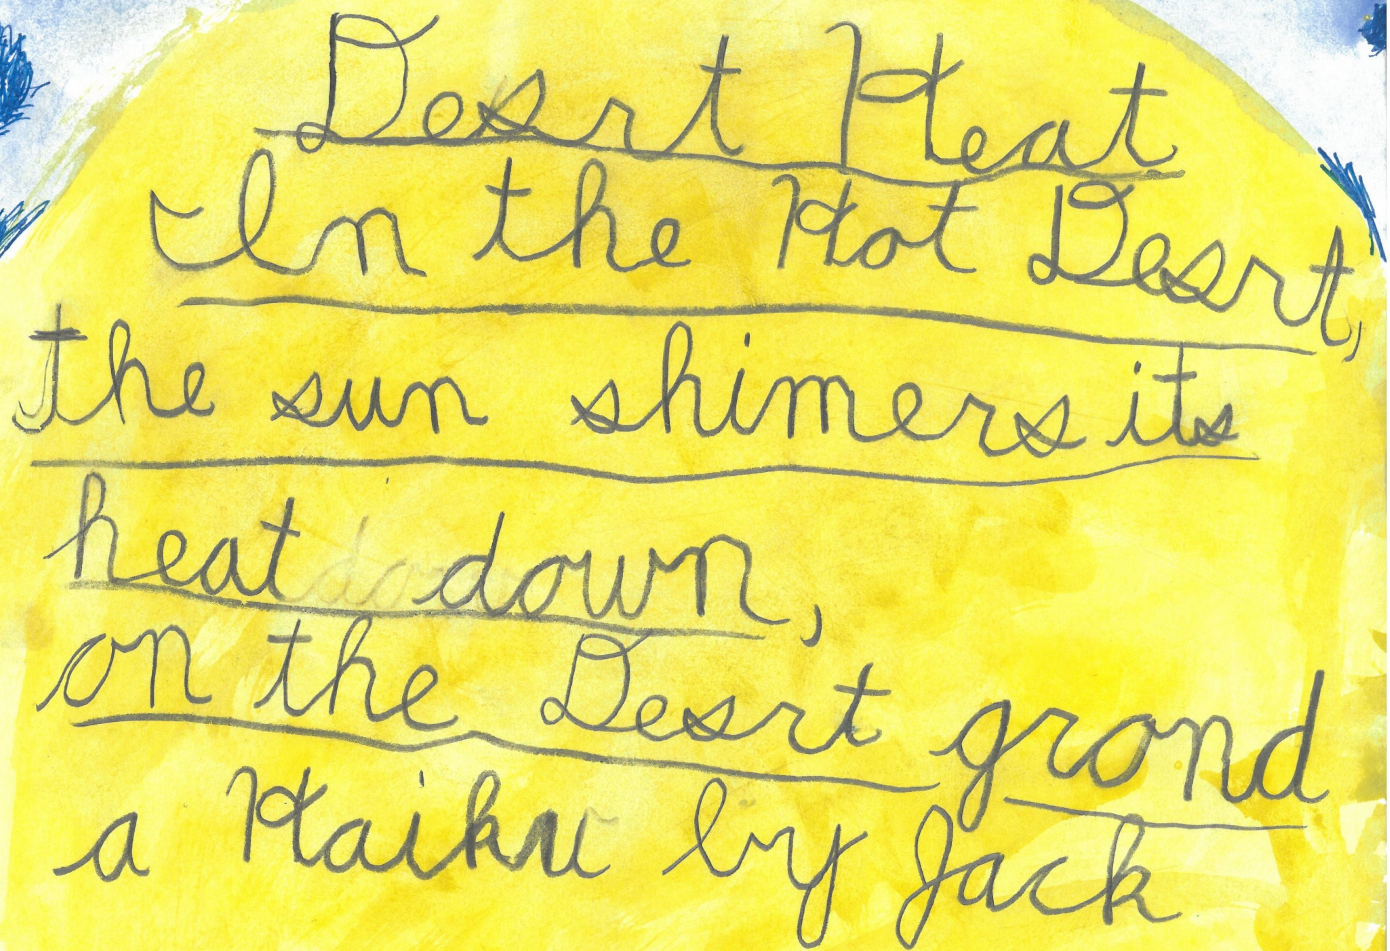 Desrt Heat
In the Hot Desrt,
the sun shimers its
heat down,
on the Desrt grond
a Haiku by Jack